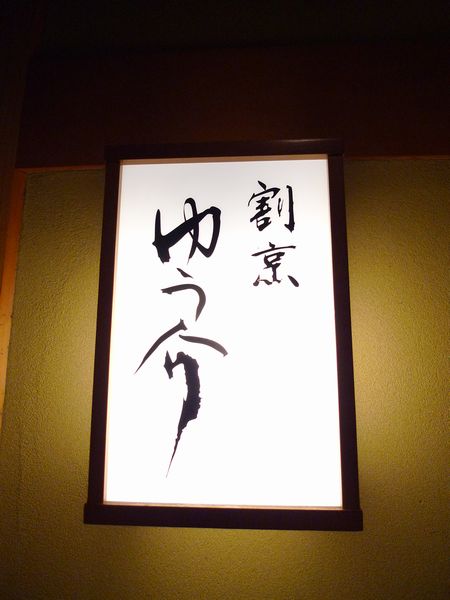 割烹
ゆう介